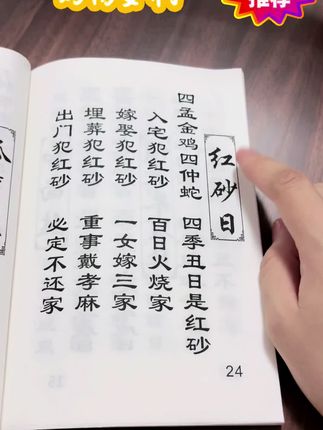 推荐
红砂日
四孟金鸡四仲蛇 四季丑日是红砂
入宅犯红砂 百日火烧家
嫁娶犯红砂 一女嫁三家
埋葬犯红砂 重事戴孝麻
出门犯红砂 必定不还家
24